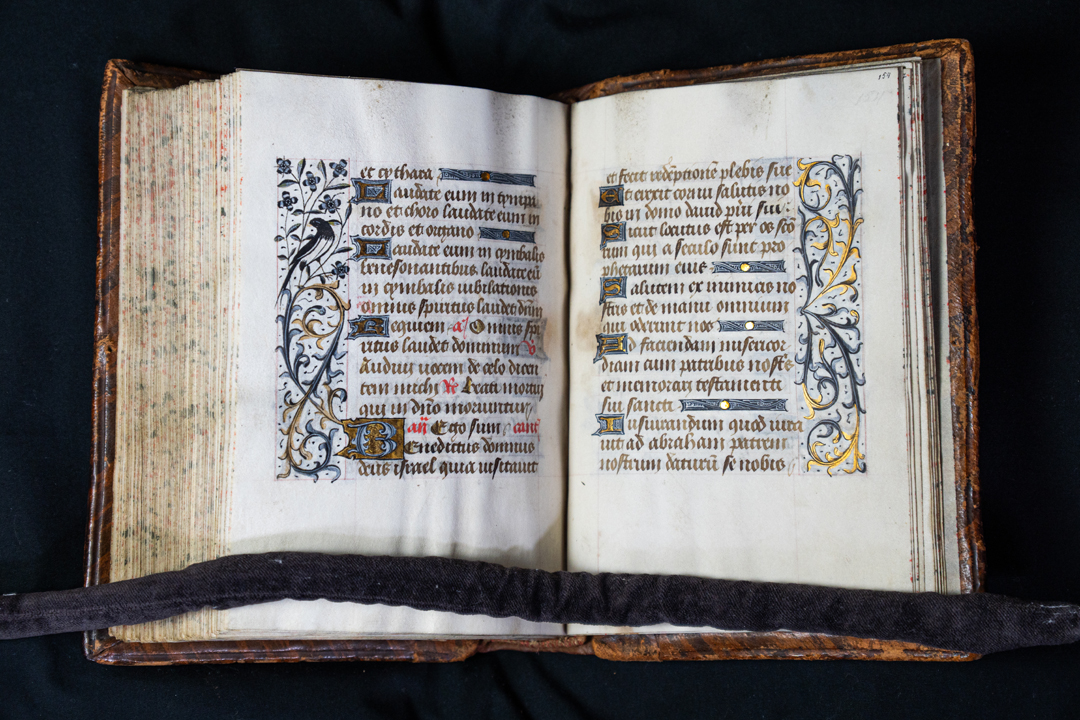 et cythara
Laudate eum in tympa
no et choro laudate eum in
cordis et organo
Laudate eum in cymbalis
benesonantibus laudate eū
in cymbalis iubilationis
omnis spiritus laudet dūm
Requiem a᷒ Omnis spi
ritus laudet dominum v᷒
Audiui uocem de celo dicen
tem michi R᷒ Beati mortui
qui in dn̄o moriuntur
an̄ Ego sum cant᷒
Benedictus dominus
deus israel quia uisitauit
154
et fecit redēptionē plebis sue
Et erexit cornu salutis no
bis in domo dauid pūi sui
Sicut locutus est per os scō
rum qui a seculo sunt pro
phetarum eius
Salutem ex inimicis no
stris et de manu omnium
qui oderunt nos
Ad faciendam misericor
diam cum patribus nostris
et memorari testamenti
sui sancti
Iusiurandum quod iura
uit ad abraham patrem
nostrum daturū se nobis